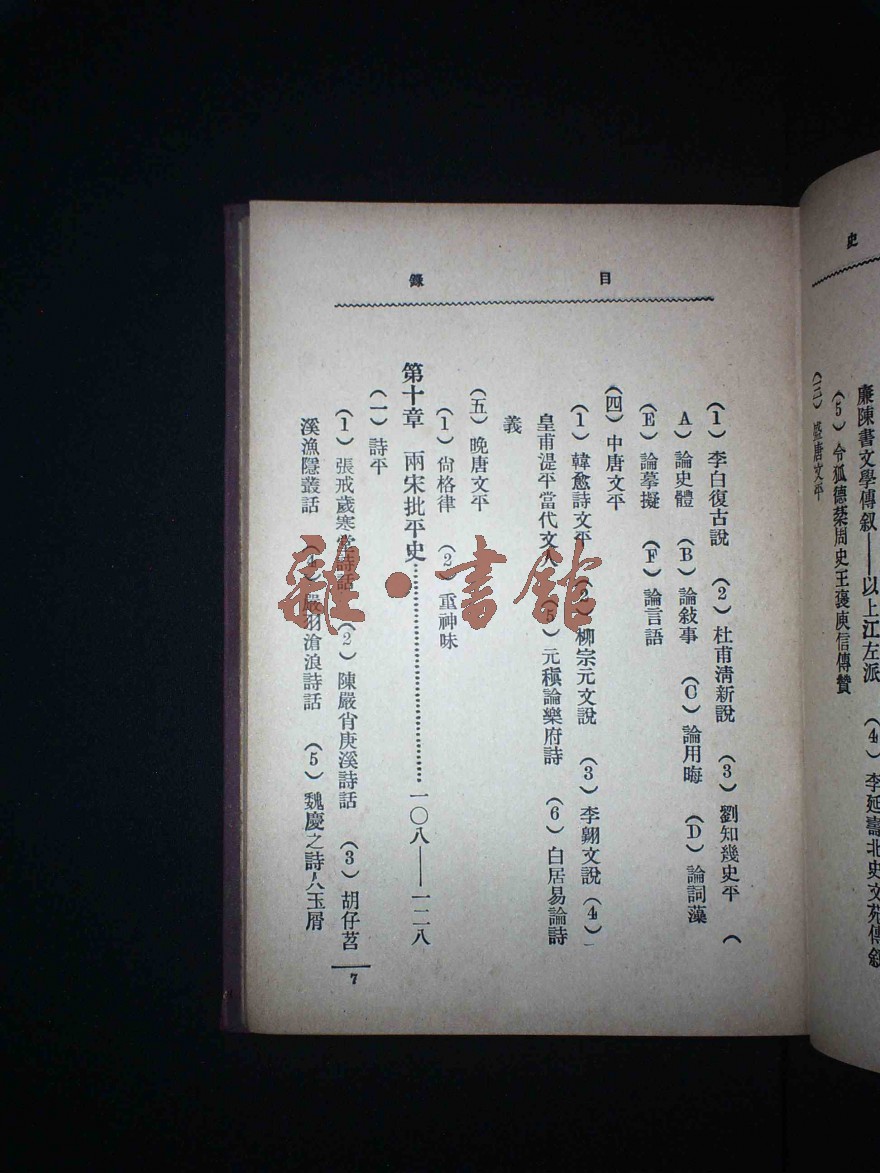 史
廉陳書文學傳叙——以上江左派 (4) 李延壽北史文苑傳叙
(5) 令狐德棻周史王褒庾信傳贊
(三) 盛唐文平
目 錄
(1) 李白復古說 (2) 杜甫清新說 (3) 劉知幾史平 (
A) 論史體 (B) 論敍事 (C) 論用晦 (D) 論詞藻
(E) 論摹擬 (F) 論言語
(四) 中唐文平
(1) 韓愈詩文平 (2) 柳宗元文說 (3) 李翺文說 (4)
皇甫湜平當代文人 (5) 元稹論樂府詩 (6) 白居易論詩
義
(五) 晚唐文平
(1) 尙格律 (2) 重神味
第十章 兩宋批平史……一〇八——一二八
(一) 詩平
(1) 張戒歲寒堂詩話 (2) 陳嚴肖庚溪詩話 (3) 胡仔苕
溪漁隱叢話 (4) 嚴羽滄浪詩話 (5) 魏慶之詩人玉屑
7
雜·書館